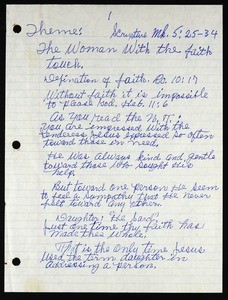 1
Theme: Scripture Mk. 5:25-34
The Woman With the faith
touch.
Defination of faith. Ro. 10:17
Without faith it is impossible
to please God, Heb. 11:6
As you read the N.T.
you are impressed with the
tenderness Jesus expressed so often
toward those in need.
He was always kind and gentle
toward those who sought His
help.
But toward one person He seem
to feel a sympathy that He never
felt toward any other.
Daughter, He said,
Just one time thy faith has
made thee whole.
That is the only time Jesus
used the term daughter in
addressing a person.